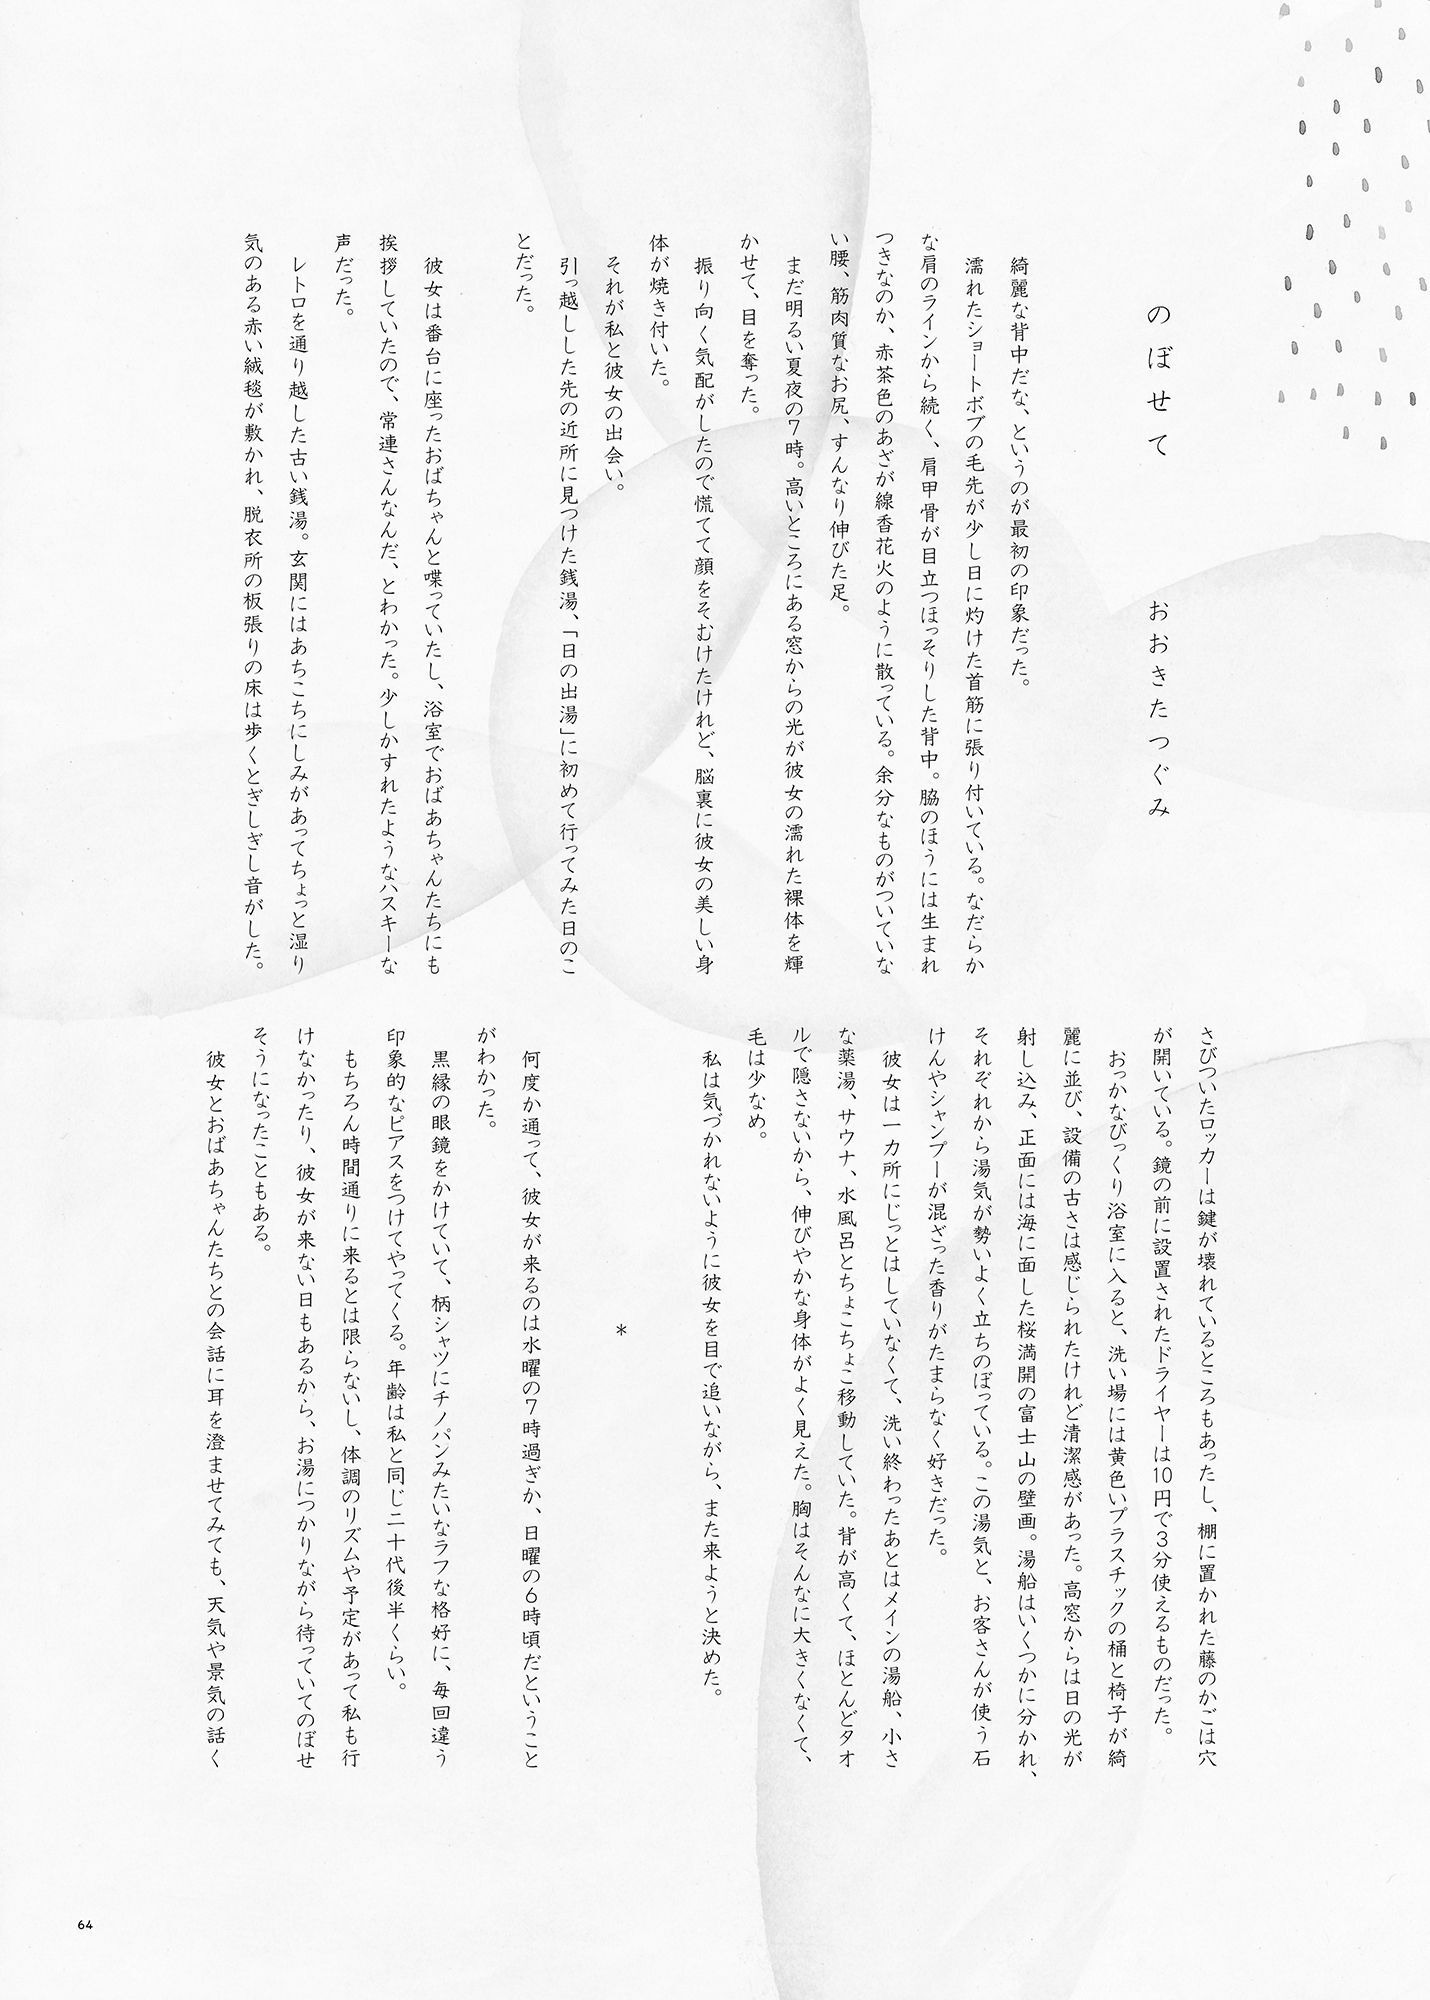 のぼせて
おおきたつぐみ
綺麗な背中だな、というのが最初の印象だった。
濡れたショートボブの毛先が少し日に灼けた首筋に張り付いている。なだらか
な肩のラインから続く、肩甲骨が目立つほっそりした背中。脇のほうには生まれ
つきなのか、赤茶色のあざが線香花火のように散っている。余分なものがついていな
い腰、筋肉質なお尻、すんなり伸びた足。
まだ明るい夏夜の7時。高いところにある窓からの光が彼女の濡れた裸体を輝
かせて、目を奪った。
振り向く気配がしたので慌てて顔をそむけたけれど、脳裏に彼女の美しい身
体が焼き付いた。
それが私と彼女の出会い。
引っ越しした先の近所に見つけた銭湯、「日の出湯」に初めて行ってみた日のこ
とだった。
彼女は番台に座ったおばちゃんと喋っていたし、浴室でおばあちゃんたちにも
挨拶していたので、常連さんなんだ、とわかった。少しかすれたようなハスキーな
声だった。
レトロを通り越した古い銭湯。玄関にはあちこちにしみがあってちょっと湿り
気のある赤い絨毯が敷かれ、脱衣所の板張りの床は歩くとぎしぎし音がした。
さびついたロッカーは鍵が壊れているところもあったし、棚に置かれた藤のかごは穴
が開いている。鏡の前に設置されたドライヤーは10円で3分使えるものだった。
おっかなびっくり浴室に入ると、洗い場には黄色いプラスチックの桶と椅子が綺
麗に並び、設備の古さは感じられたけれど清潔感があった。高窓からは日の光が
射し込み、正面には海に面した桜満開の富士山の壁画。湯船はいくつかに分かれ、
それぞれから湯気が勢いよく立ちのぼっている。この湯気と、お客さんが使う石
けんやシャンプーが混ざった香りがたまらなく好きだった。
彼女は一カ所にじっとはしていなくて、洗い終わったあとはメインの湯船、小さ
な薬湯、サウナ、水風呂とちょこちょこ移動していた。背が高くて、ほとんどタオ
ルで隠さないから、伸びやかな身体がよく見えた。胸はそんなに大きくなくて、
毛は少なめ。
私は気づかれないように彼女を目で追いながら、また来ようと決めた。
*
何度か通って、彼女が来るのは水曜の7時過ぎか、日曜の6時頃だということ
がわかった。
黒縁の眼鏡をかけていて、柄シャツにチノパンみたいなラフな格好に、毎回違う
印象的なピアスをつけてやってくる。年齢は私と同じ二十代後半くらい。
もちろん時間通りに来るとは限らないし、体調のリズムや予定があって私も行
けなかったり、彼女が来ない日もあるから、お湯につかりながら待っていてのぼせ
そうになったこともある。
彼女とおばあちゃんたちとの会話に耳を澄ませてみても、天気や景気の話く
64